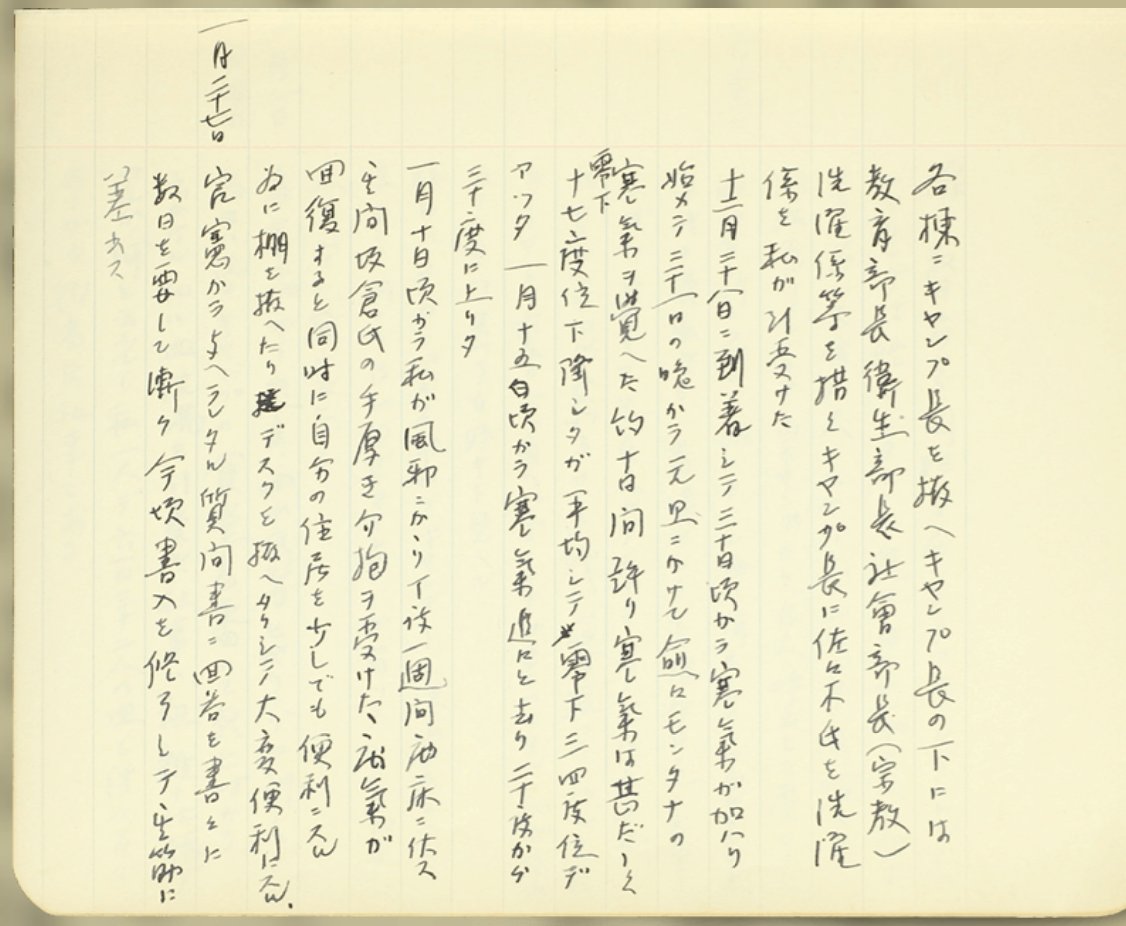 各棟ニキャンプ長を撰へキャンプ長の下には
教育部長衛生部長社會部長（宗教）
洗濯係等を措くキャンプ長に佐々木氏を洗濯
係を私が引受けた
十二月二十八日ニ到着シテ三十日頃から寒氣が加ハり
始メテ三十一日の晩から元旦ニかけて愈々モンタナの
寒氣ヲ覚へた約十日間許り寒氣は甚だしく
零下
十七度位下降シタが平均シテ零下三四度位デ
アッタ 一月十五日頃から寒氣追々と去り二十度から
三十二度に上りタ
一月十日頃から私が風邪ニかゝりイ後一週間病床ニ伏ス
其間坂倉氏の手厚き介抱ヲ受けた、病氣が
回復すると同時に自分の住居を少しでも便利ニスル
為に棚を拵へたりデスクを拵へタリシテ大変便利ニスル.
一月二十七日
官憲から与へラレタル質問書ニ回答を書くに
数日を要して漸ク今頃書入を修了シテ其筋に
差出ス